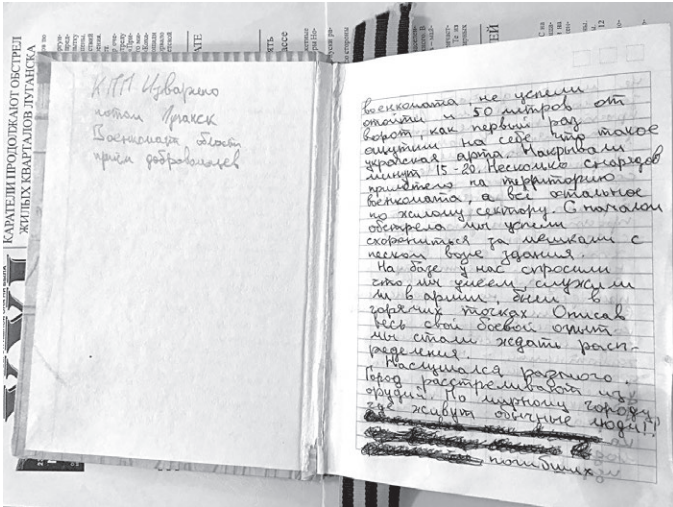 КАРАТЕЛИ ПРОДОЛЖАЮТ ОБСТРЕЛ
ЖИЛЫХ КВАРТАЛОВ ЛУГАНСКА
КПП Изварено
потом Луганск
Военкомат области
приём добровольцев
военкомата, не успели
отойти и 50 метров от
ворот, как первый раз
ощутили на себе что такое
украская арта. Накрывали
минут 15-20. Несколько снарядов
прилетело на территорию
военкомата, а всё остальное
по жилому сектору. С началом
обстрела мы успели
схорониться за мешками с
песком возле здания.
На базе у нас спросили
что мы умеем, служили
ли в армии, были в
горячих точках. Описав
весь свой боевой опыт
мы стали ждать расп-
ределения.
Наслушался разного.
Город расстреливают из
орудий. По мирному городу,
где живут обычные люди!!
погибших